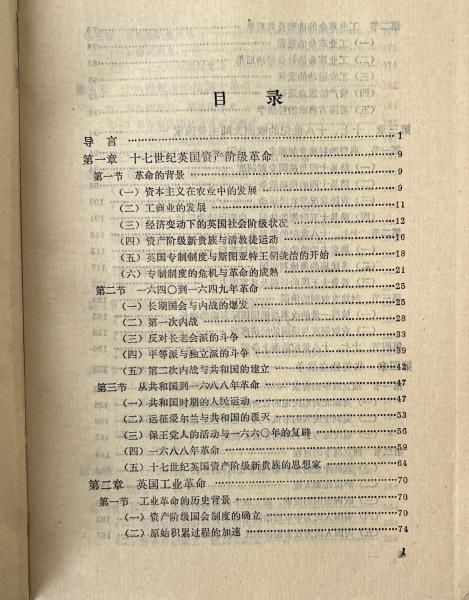 目录
导言 1
第一章 十七世纪英国资产阶级革命 9
第一节 革命的背景 9
（一）资本主义在农业中的发展 9
（二）工商业的发展 11
（三）经济变动下的英国社会阶级状况 12
（四）资产阶级新贵族与清教徒运动 16
（五）英国专制制度与斯图亚特王朝统治的开始 18
（六）专制制度的危机与革命的成熟 21
第二节 一六四〇到一六四九年革命 25
（一）长期国会与内战的爆发 25
（二）第一次内战 28
（三）反对长老会派的斗争 33
（四）平等派与独立派的斗争 39
（五）第二次内战与共和国的建立 42
第三节 从共和国到一六八八年革命 47
（一）共和国时期的人民运动 47
（二）远征爱尔兰与共和国的覆灭 53
（三）保王党人的活动与一六六〇年的复辟 56
（四）一六八八年革命 59
（五）十七世纪英国资产阶级新贵族的思想家 64
第二章 英国工业革命 70
第一节 工业革命的历史背景 70
（一）资产阶级国会制度的确立 70
（二）原始积累过程的加速 74
1